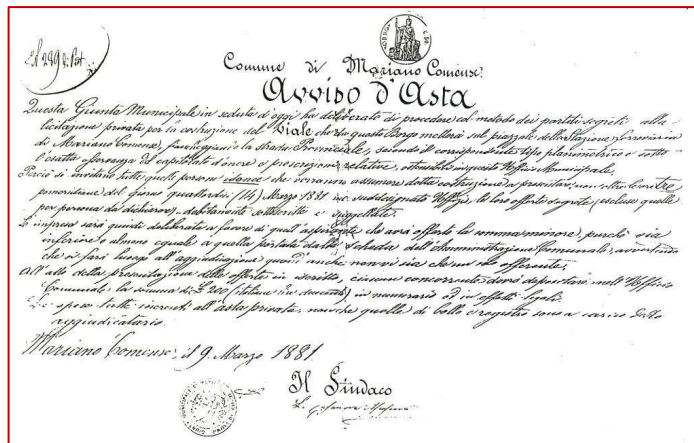 N. 249 di Prot.
Comune di Mariano Comense
Avviso d'Asta
Questa Giunta Municipale in seduta d'oggi ha deliberato di procedere col metodo dei partiti segreti alla
licitazione privata per la costruzione del Viale che da questo Borgo metterà sul piazzale della Stazione ferroviaria
di Mariano Comense, fronteggiando la strada Provinciale, secondo il corrispondente tipo planimetrico e sotto
l'esatta osservanza del capitolato d'oneri e prescrizioni relative, ostensibili in questo Ufficio Municipale.
Perciò si invitano tutte quelle persone idonee che vorranno assumere detta costruzione a presentare, non oltre le ore tre
pomeridiane del giorno quattordici (14) Marzo 1881 al suddesignato Ufficio, le loro offerte segrete (escluse quelle
per persona da dichiarare), debitamente sottoscritte e suggellate.
La impresa sarà quindi deliberata a favore di quell'aspirante che avrà offerto la somma minore, purchè sia
inferiore o almeno eguale a quella portata dalla Scheda dell'Amministrazione Comunale, avvertendo
che si farà luogo all'aggiudicazione quand'anche non vi sia che un solo offerente.
All'atto della presentazione delle offerte in iscritto, ciascun concorrente dovrà depositare nell'Ufficio
Comunale la somma di £ 200 (italiane lire duecento) in numerario od in effetti legali.
Le spese tutte inerenti all'asta privata, nonchè quelle di bollo e registro sono a carico dello
aggiudicatario.
Mariano Comense, il 9. Marzo 1881.
Il Sindaco